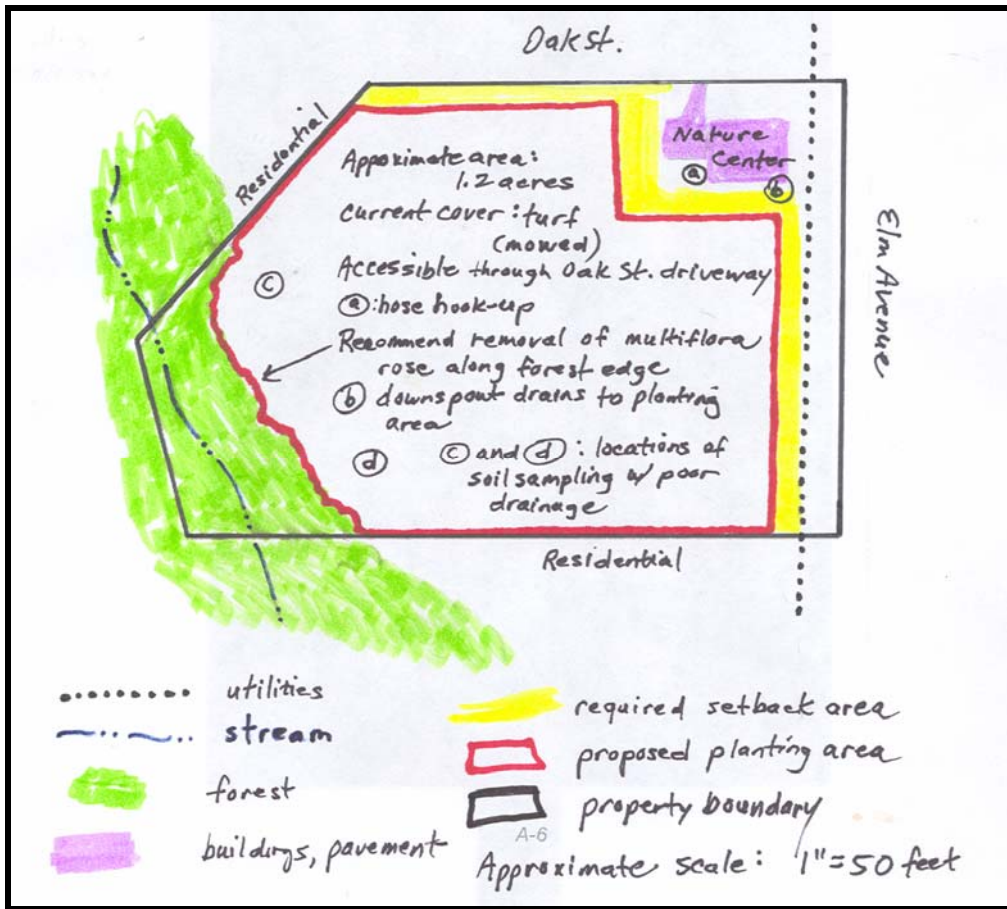 Oak St.
Residential
Nature
Center
ⓐ
ⓑ
Elm Avenue
Appoximate area:
1.2 acres
Current cover: turf
(mowed)
Accessible through Oak St. driveway
ⓒ
ⓐ: hose hook-up
Recommend removal of multiflora
rose along forest edge
ⓑ downspout drains to planting
area
ⓓ
ⓒ and ⓓ: locations of
soil sampling w/ poor
drainage
Residential
utilities
stream
forest
buildings, pavement
required setback area
proposed planting area
property boundary
A-6
Approximate scale: 1"=50 feet